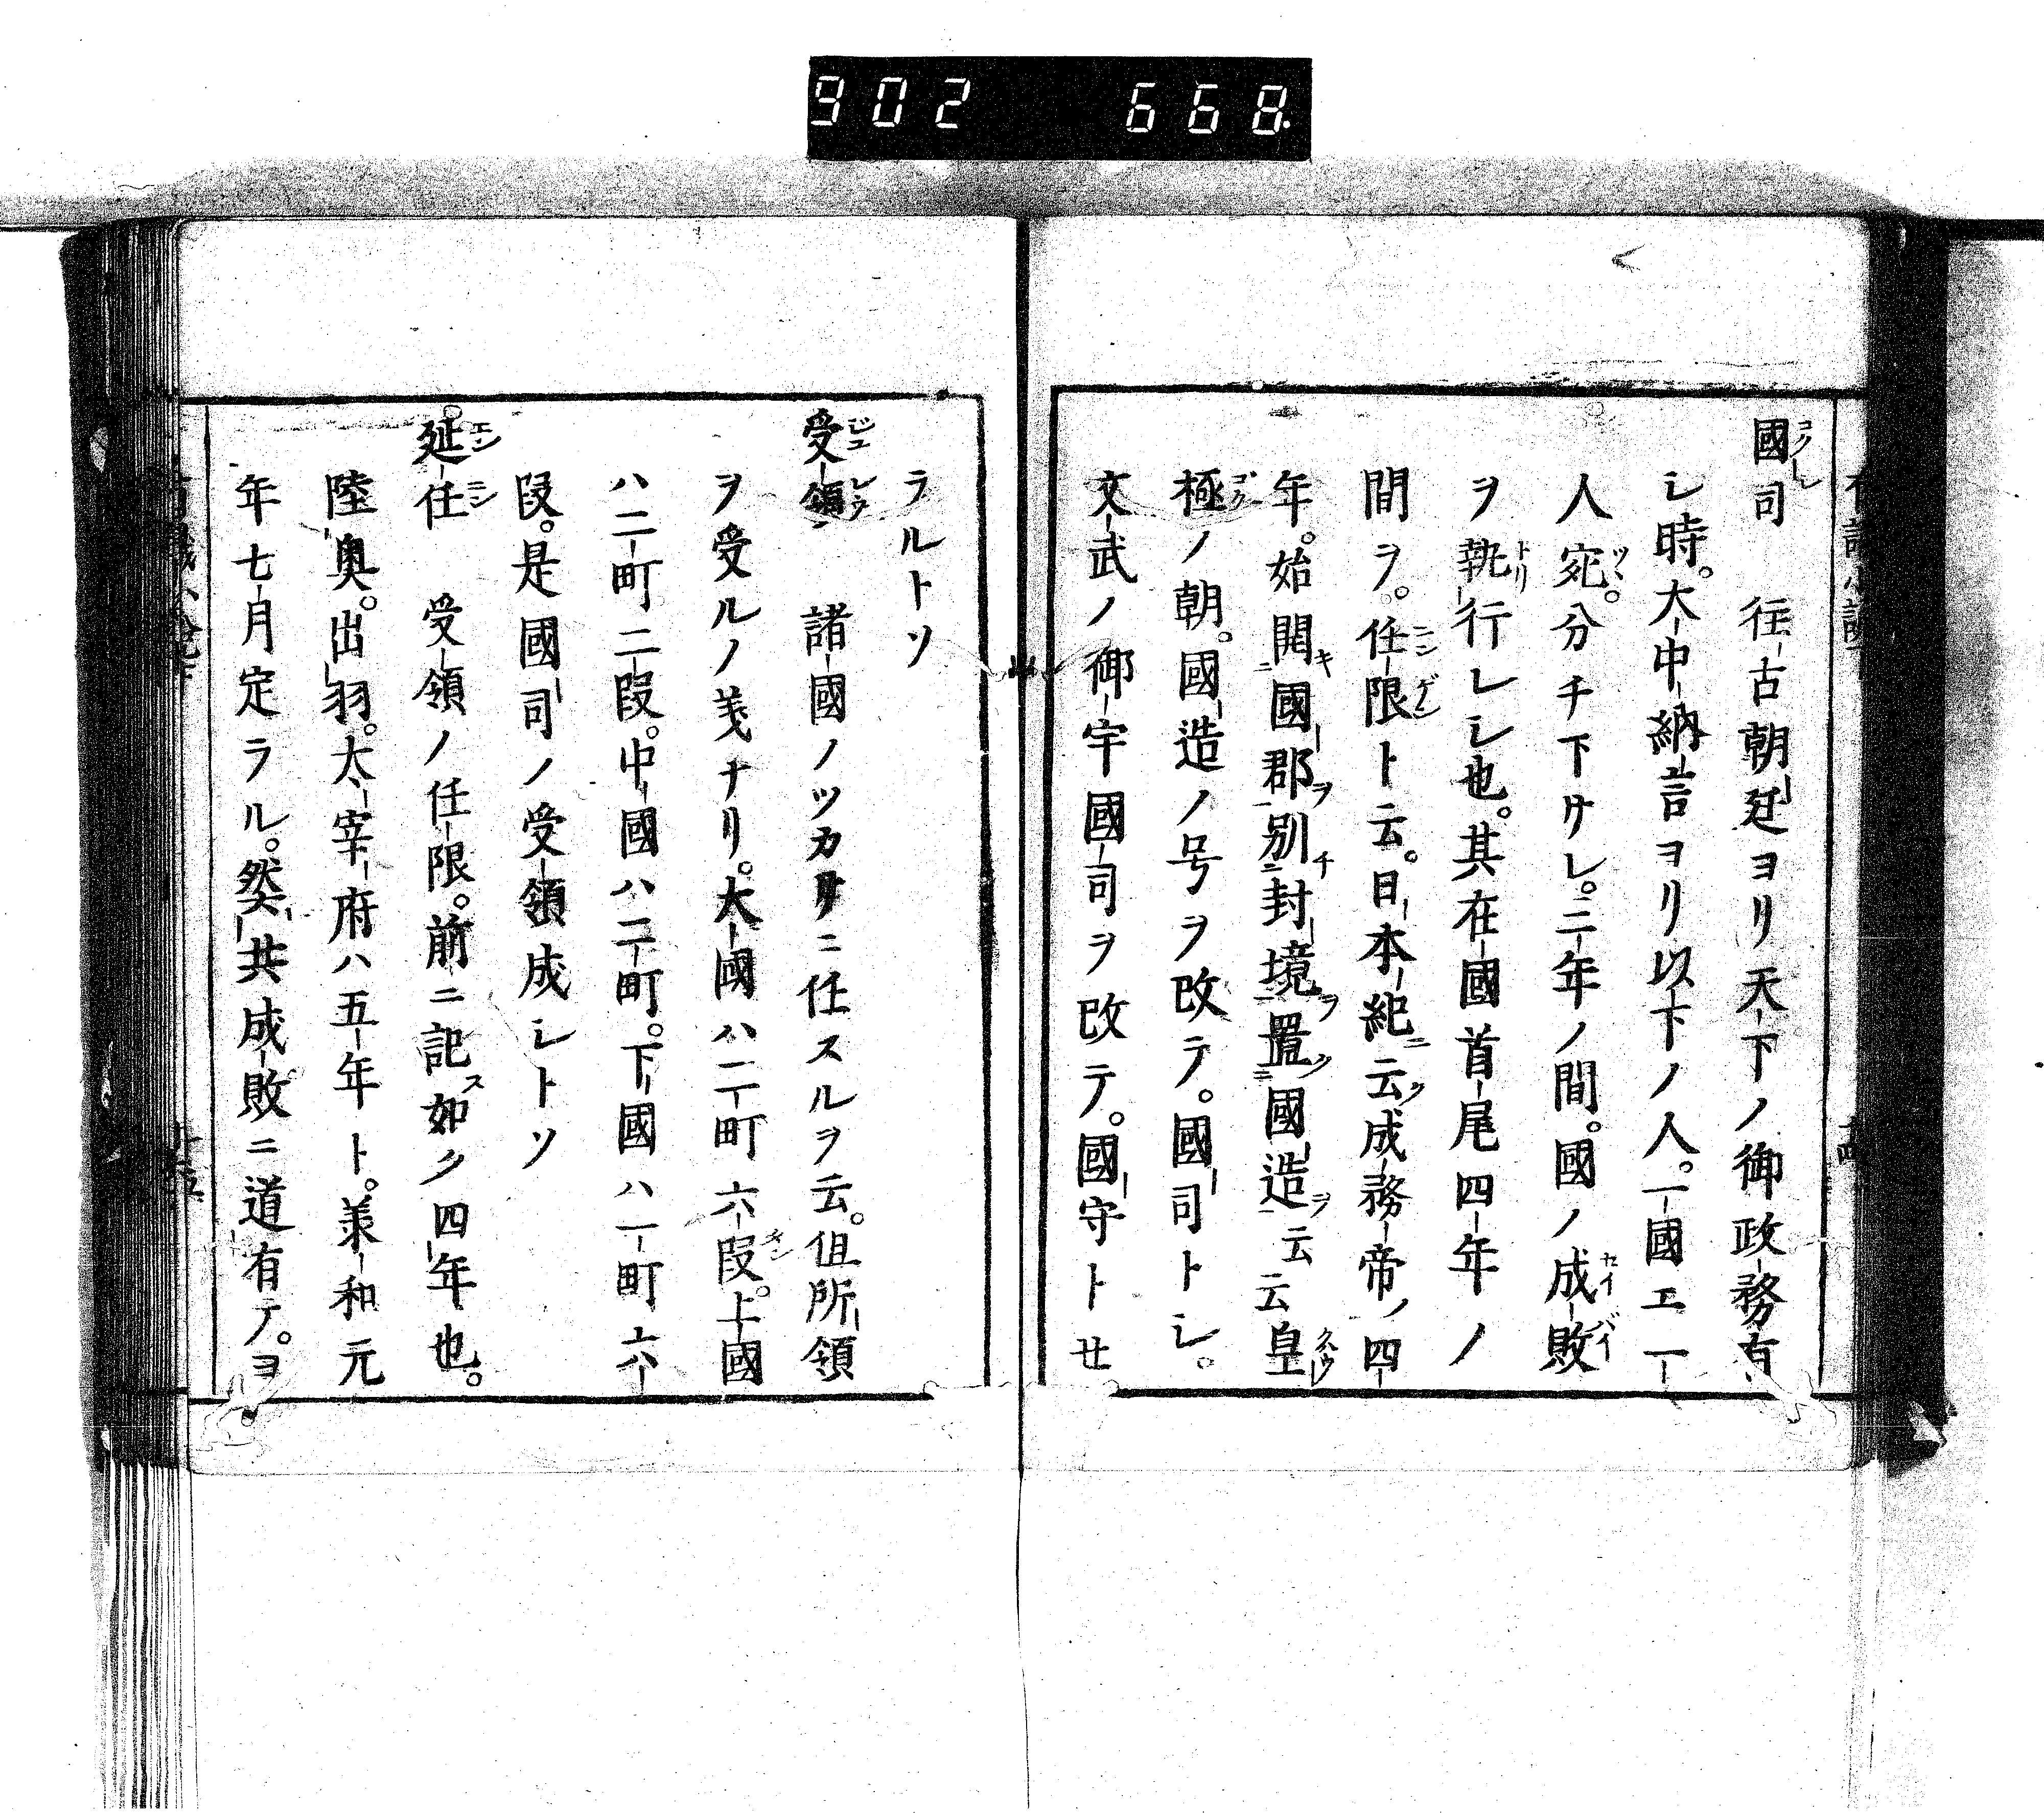 902 668
國司 往古朝廷ヨリ天下ノ御政務有
シ時。大中納言ヨリ以下ノ人。一國エ一
人宛。分チ下サレ。三年ノ間。國ノ成敗
ヲ執行レシ也。其在國首尾四年ノ
間ヲ。任限ト云。日本紀ニ云ク成務帝ノ四
年。始開キ國郡ヲ別チ封境ヲ置ク國造ヲ云云皇
極ノ朝。國造ノ号ヲ改テ。國司トシ。
文武ノ御宇國司ヲ改テ。國守トせ
ラルトソ
受領 諸國ノツカサニ任スルヲ云。但所領
ヲ受ルノ義ナリ。大國ハ二町六段。上國
ハ二町二段。中國ハ二町。下國ハ一町六
段。是國司ノ受領成シトソ
延任 受領ノ任限。前ニ記ス如ク四年也。
陸奥。出羽。太宰府ハ五年ト。羕和元
年七月定ラル。然共成敗ニ道有テ。ヨ